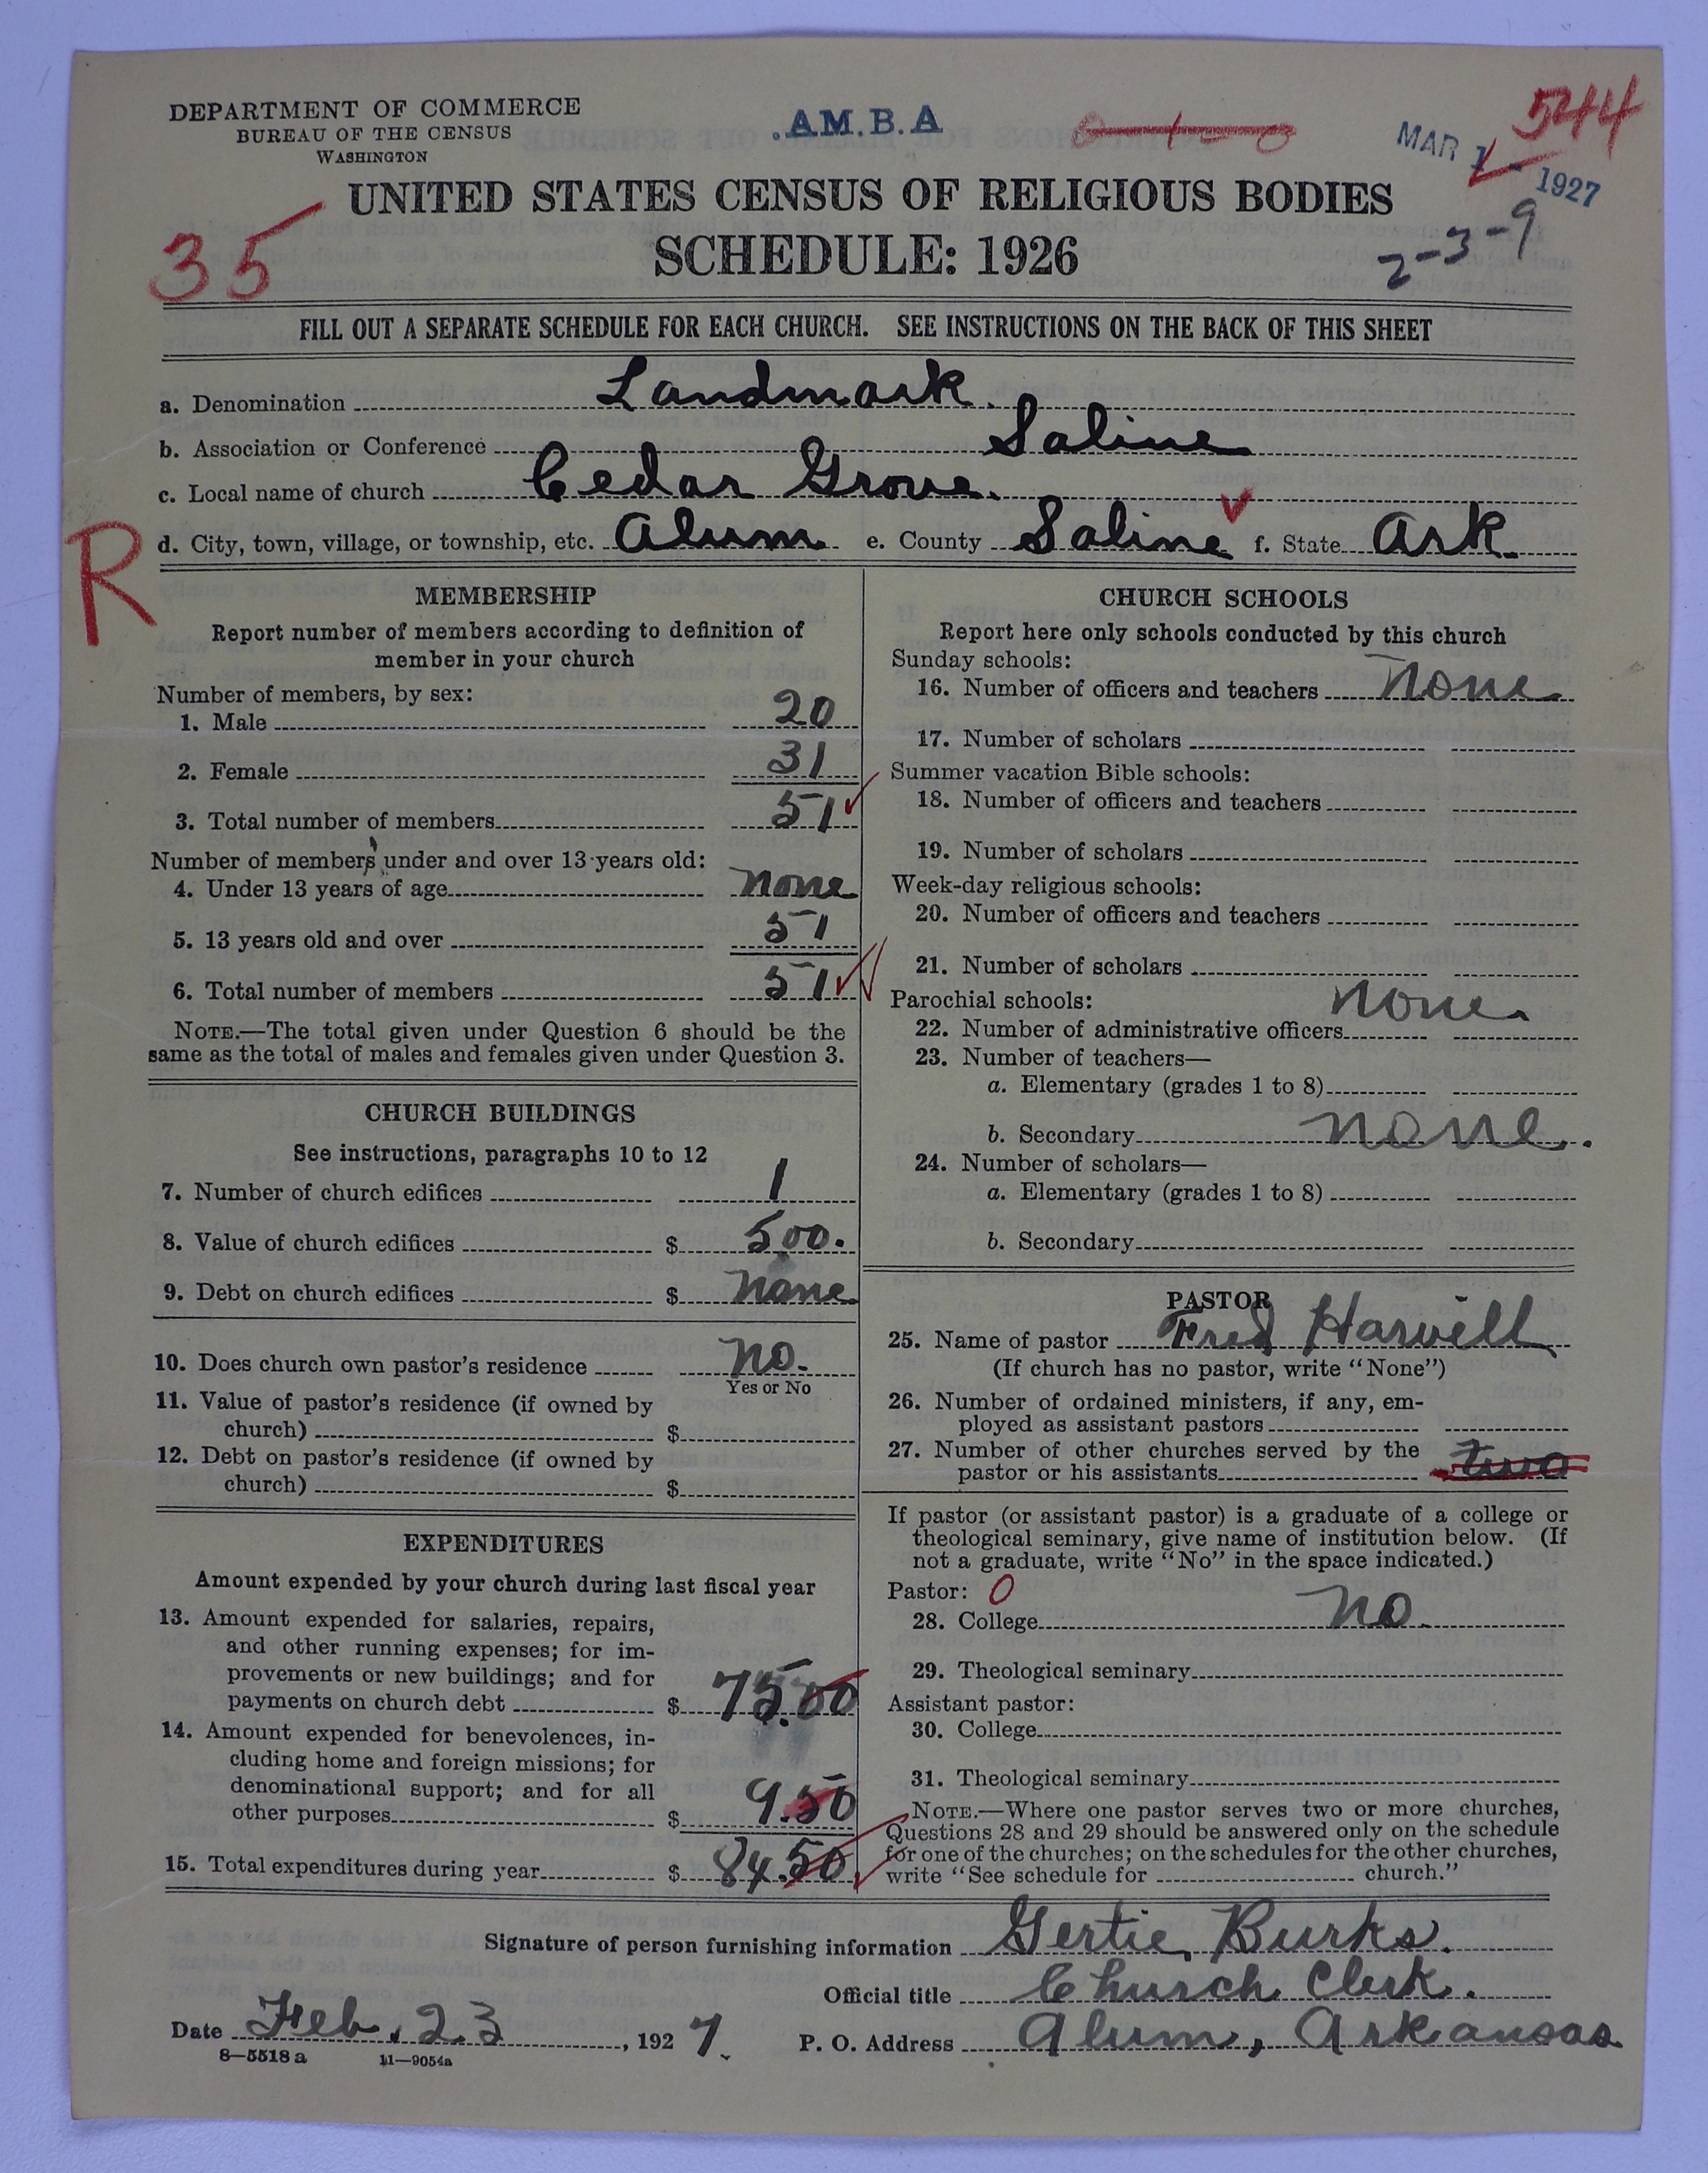 DEPARTMENT OF COMMERCE
BUREAU OF THE CENSUS
WASHINGTON
.A.M.B.A
544
MAR 1 - 1927
UNITED STATES CENSUS OF RELIGIOUS BODIES
SCHEDULE: 1926
35
2-3-9
FILL OUT A SEPARATE SCHEDULE FOR EACH CHURCH. SEE INSTRUCTIONS ON THE BACK OF THIS SHEET
a. Denomination Landmark.
b. Association or Conference Saline
c. Local name of church Cedar Grove.
d. City, town, village, or township, etc. Alum e. County Saline f. State Ark.
R
MEMBERSHIP
Report number of members according to definition of
member in your church
Number of members, by sex:
1. Male 20
2. Female 31
3. Total number of members 51
Number of members under and over 13 years old:
4. Under 13 years of age none
5. 13 years old and over 51
6. Total number of members 51
NOTE.—The total given under Question 6 should be the
same as the total of males and females given under Question 3.
CHURCH BUILDINGS
See instructions, paragraphs 10 to 12
7. Number of church edifices 1
8. Value of church edifices $ 500.
9. Debt on church edifices $ none
10. Does church own pastor's residence no.
Yes or No
11. Value of pastor's residence (if owned by
church) $
12. Debt on pastor's residence (if owned by
church) $
EXPENDITURES
Amount expended by your church during last fiscal year
13. Amount expended for salaries, repairs,
and other running expenses; for im-
provements or new buildings; and for
payments on church debt $ 75.00
14. Amount expended for benevolences, in-
cluding home and foreign missions; for
denominational support; and for all
other purposes $ 9.50
15. Total expenditures during year $ 84.50.
CHURCH SCHOOLS
Report here only schools conducted by this church
Sunday schools:
16. Number of officers and teachers none
17. Number of scholars
Summer vacation Bible schools:
18. Number of officers and teachers
19. Number of scholars
Week-day religious schools:
20. Number of officers and teachers
21. Number of scholars
Parochial schools: none.
22. Number of administrative officers
23. Number of teachers—
a. Elementary (grades 1 to 8)
b. Secondary none.
24. Number of scholars—
a. Elementary (grades 1 to 8)
b. Secondary
PASTOR
25. Name of pastor Fred Harvell
(If church has no pastor, write "None")
26. Number of ordained ministers, if any, em-
ployed as assistant pastors
27. Number of other churches served by the
pastor or his assistants two
If pastor (or assistant pastor) is a graduate of a college or
theological seminary, give name of institution below. (If
not a graduate, write "No" in the space indicated.)
Pastor: 0
28. College no.
29. Theological seminary
Assistant pastor:
30. College
31. Theological seminary
NOTE.—Where one pastor serves two or more churches,
Questions 28 and 29 should be answered only on the schedule
for one of the churches; on the schedules for the other churches,
write "See schedule for church."
Signature of person furnishing information Gertie Burks.
Official title Church Clerk.
Date Feb. 23, 1927. P. O. Address Alum, Arkansas
8—5518 a 11—9054a